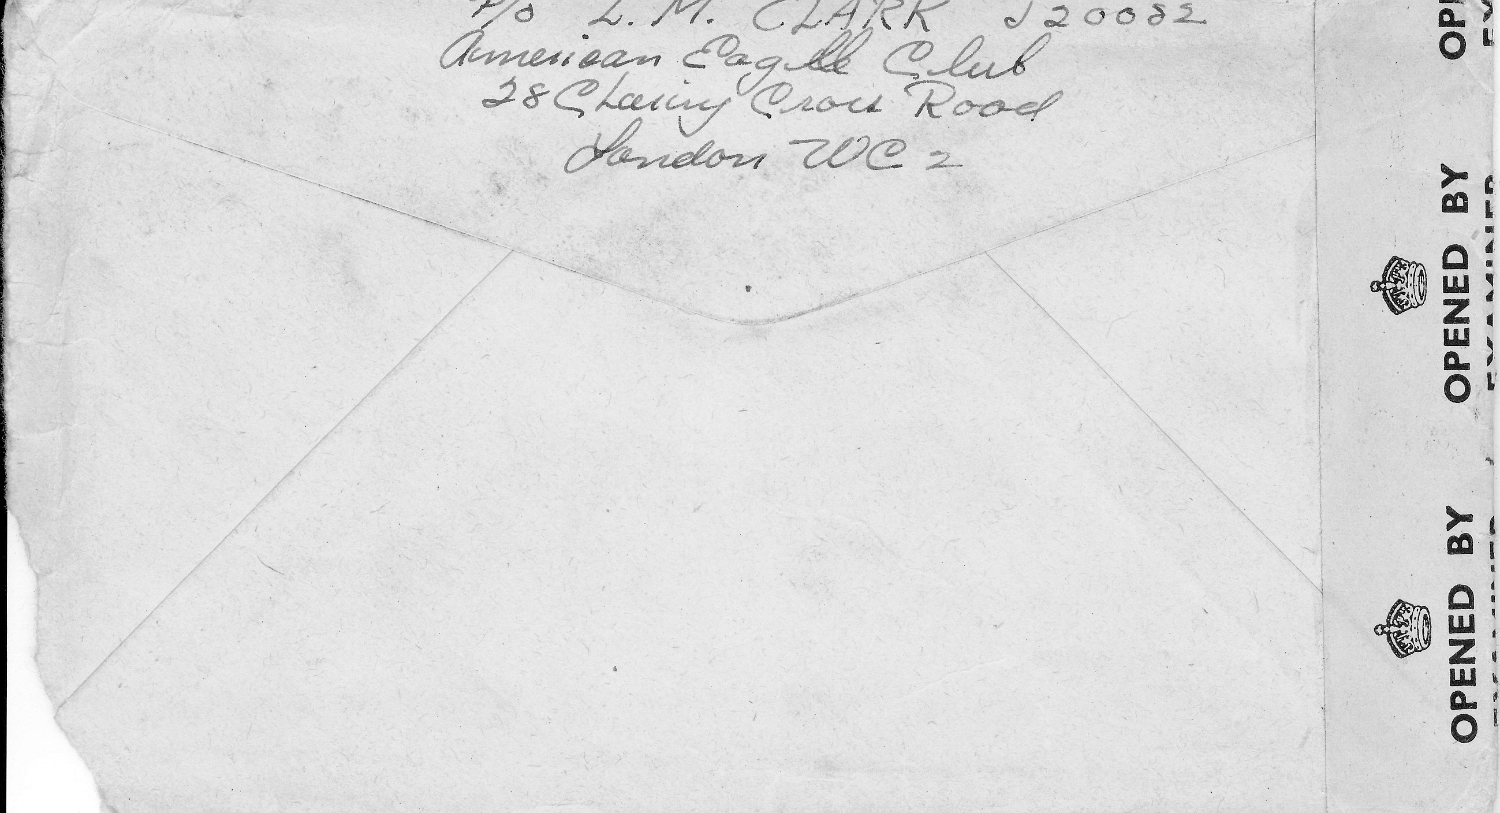 P/o L. M. CLARK J20082
American Eagle Club
28 Charing Cross Road
London WC 2
OPENED BY OPENED BY
EXAMINER EXAMINER